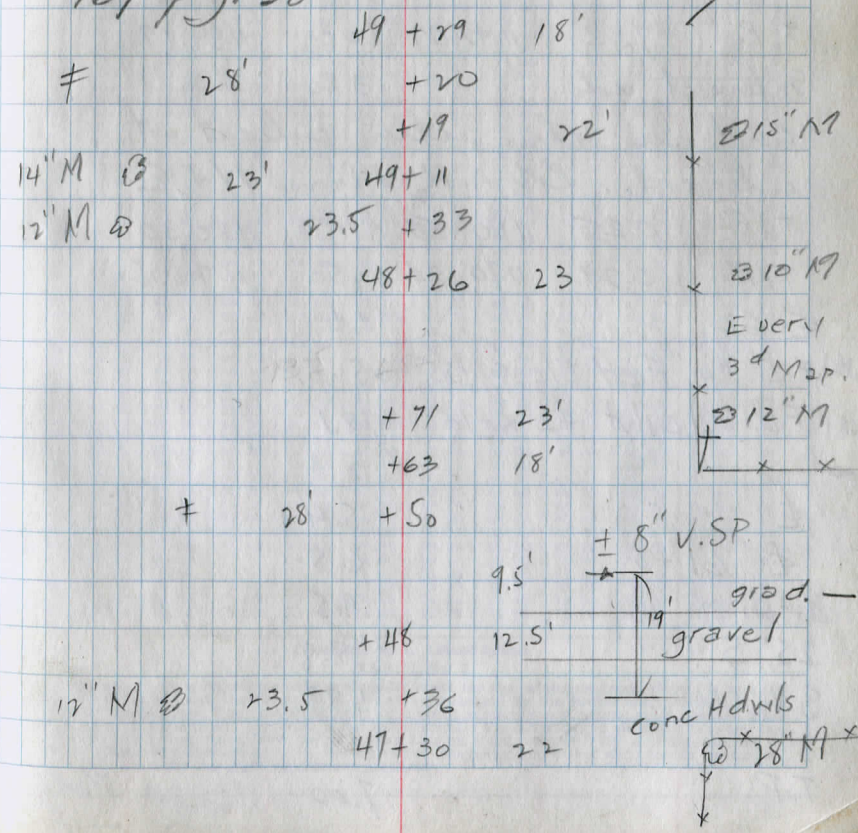 49 + 29 18'
≠ 28' + 20
+19 22' 15" M
14" M 23' 49+ 11
12" M 23.5 + 33
48+26 23 10" M
Every
3d Map.
+ 71 23' 12" M
+63 18'
≠ 28' + 50
± 8" V.SP
9.5' grad.
19'
+48 12.5' gravel
12" M 23.5 +36
conc Hdwls
47+30 22 28" M